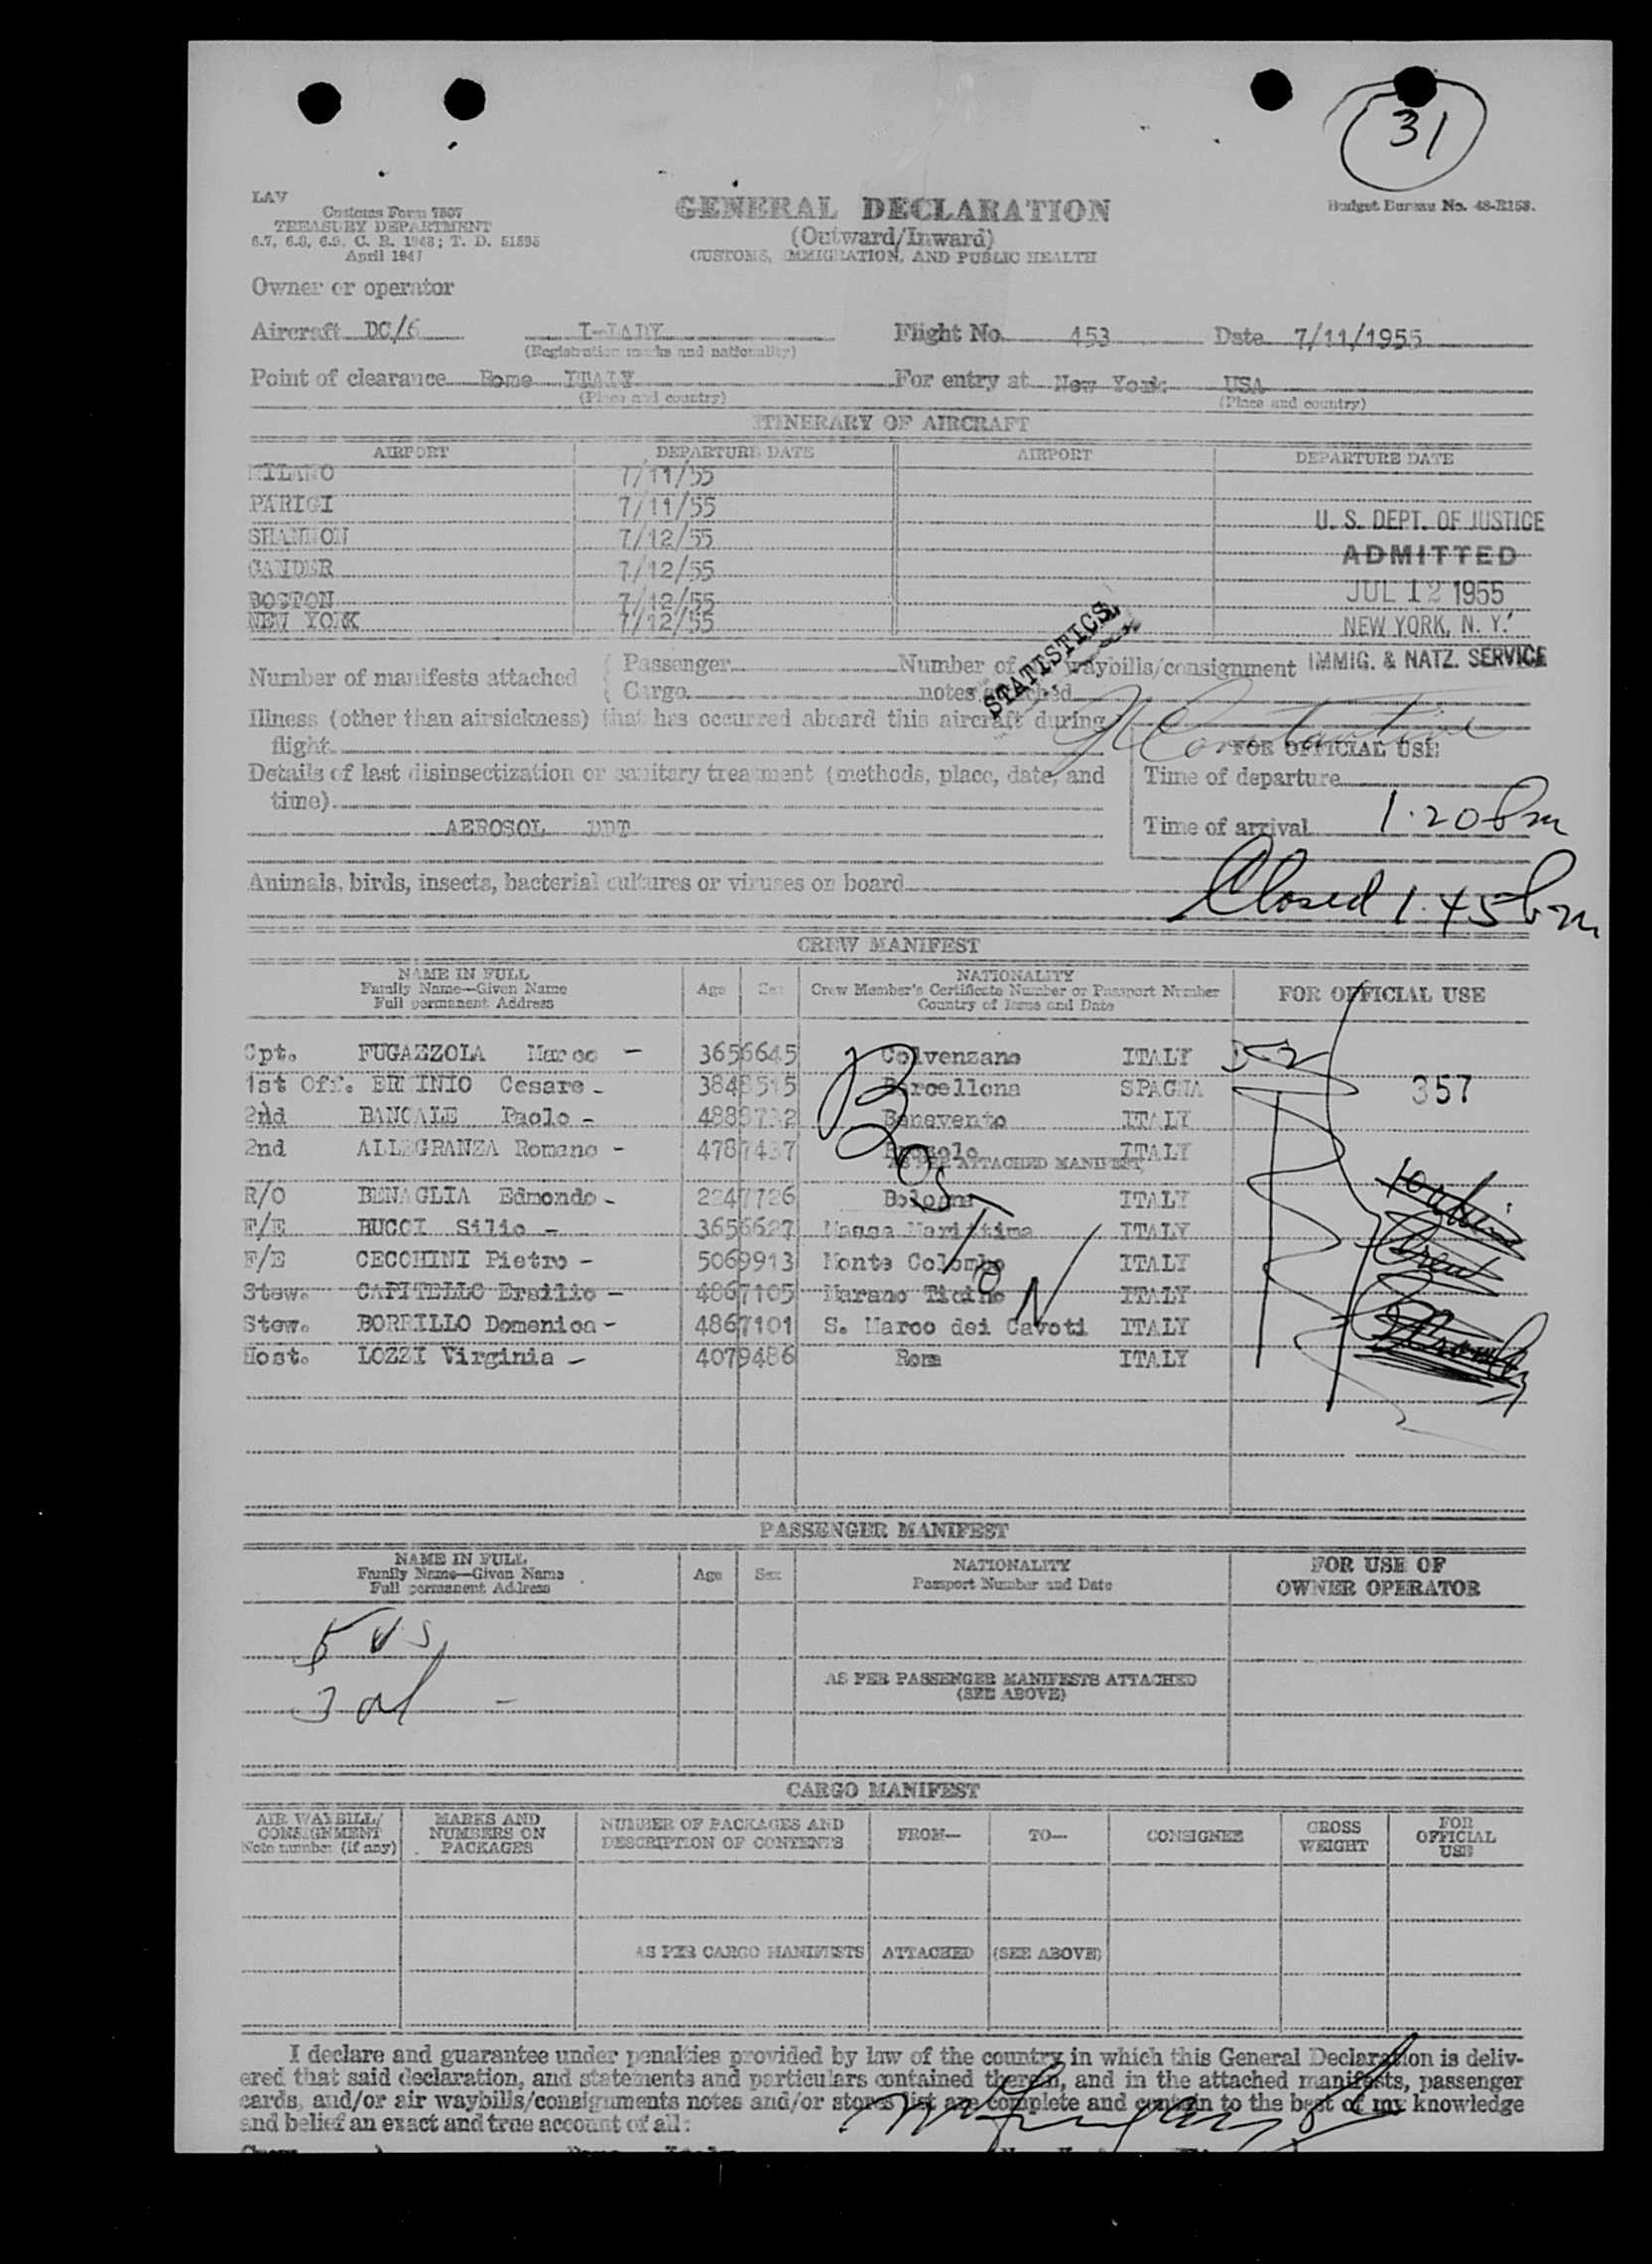 31
LAV
Customs Form 7507
TREASURY DEPARTMENT
6.7, 6.8, 6.9, C. R. 1943; T. D. 51595
April 1947
Budget Bureau No. 48-R158.
GENERAL DECLARATION
(Outward/Inward)
CUSTOMS, IMMIGRATION, AND PUBLIC HEALTH
Owner or operator
Aircraft DC/6 Flight No. 453 Date 7/11/1955
(Registration marks and nationality)
Point of clearance Rome ITALY For entry at New York USA
(Place and country) (Place and country)
ITINERARY OF AIRCRAFT
AIRPORT DEPARTURE DATE AIRPORT DEPARTURE DATE
MILANO 7/11/55
PARIGI 7/11/55
SHANNON 7/12/55
GANDER 7/12/55
BOSTON 7/12/55
NEW YORK 7/12/55
U. S. DEPT. OF JUSTICE
ADMITTED
JUL 12 1955
NEW YORK, N. Y.
IMMIG. & NATZ. SERVICE
STATISTICS
Number of manifests attached Passenger Number of waybills/consignment
Cargo notes attached
Illness (other than airsickness) that has occurred aboard this aircraft during
flight
Constantine
FOR OFFICIAL USE
Details of last disinsectization or sanitary treatment (methods, place, date, and
time)
Time of departure
AEROSOL DDT
Time of arrival 1.20 Pm
Animals, birds, insects, bacterial cultures or viruses on board
Closed 1.45 Pm
CREW MANIFEST
NAME IN FULL
Family Name—Given Name
Full permanent Address
Age Sex
NATIONALITY
Crew Member's Certificate Number or Passport Number
Country of Issue and Date
FOR OFFICIAL USE
Cpt. FUGAZZOLA Marco - 3656645 Colvenzano ITALY
1st Off. Cesare - 3848515 Barcellona SPAGNA 357
2nd BANCALE Paolo - Benevento ITALY
2nd ALLEGRANZA Romano - 4787437 ITALY
AS PER ATTACHED MANIFEST
R/O BENAGLIA Edmondo - 2247726 Bologna ITALY
F/E BUCCI Silio - 3656627 Massa Marittima ITALY
F/E CECCHINI Pietro - 5069913 Monte Colombo ITALY
Stew. CAPITELLO Ersilio - 4867105 Marano Ticino ITALY
Stew. BORRILLO Domenica - 4867101 S. Marco dei Cavoti ITALY
Host. LOZZI Virginia - 4079486 Rome ITALY
BOSTON
PASSENGER MANIFEST
NAME IN FULL
Family Name—Given Name
Full permanent Address
Age Sex
NATIONALITY
Passport Number and Date
FOR USE OF
OWNER OPERATOR
5 US
3 al -
AS PER PASSENGER MANIFESTS ATTACHED
(SEE ABOVE)
CARGO MANIFEST
AIR WAYBILL/
CONSIGNMENT
Note number (if any)
MARKS AND
NUMBERS ON
PACKAGES
NUMBER OF PACKAGES AND
DESCRIPTION OF CONTENTS
FROM—
TO—
CONSIGNEE
GROSS
WEIGHT
FOR
OFFICIAL
USE
AS PER CARGO MANIFESTS ATTACHED (SEE ABOVE)
I declare and guarantee under penalties provided by law of the country in which this General Declaration is deliv-
ered that said declaration, and statements and particulars contained therein, and in the attached manifests, passenger
cards, and/or air waybills/consignments notes and/or stores list are complete and contain to the best of my knowledge
and belief an exact and true account of all: